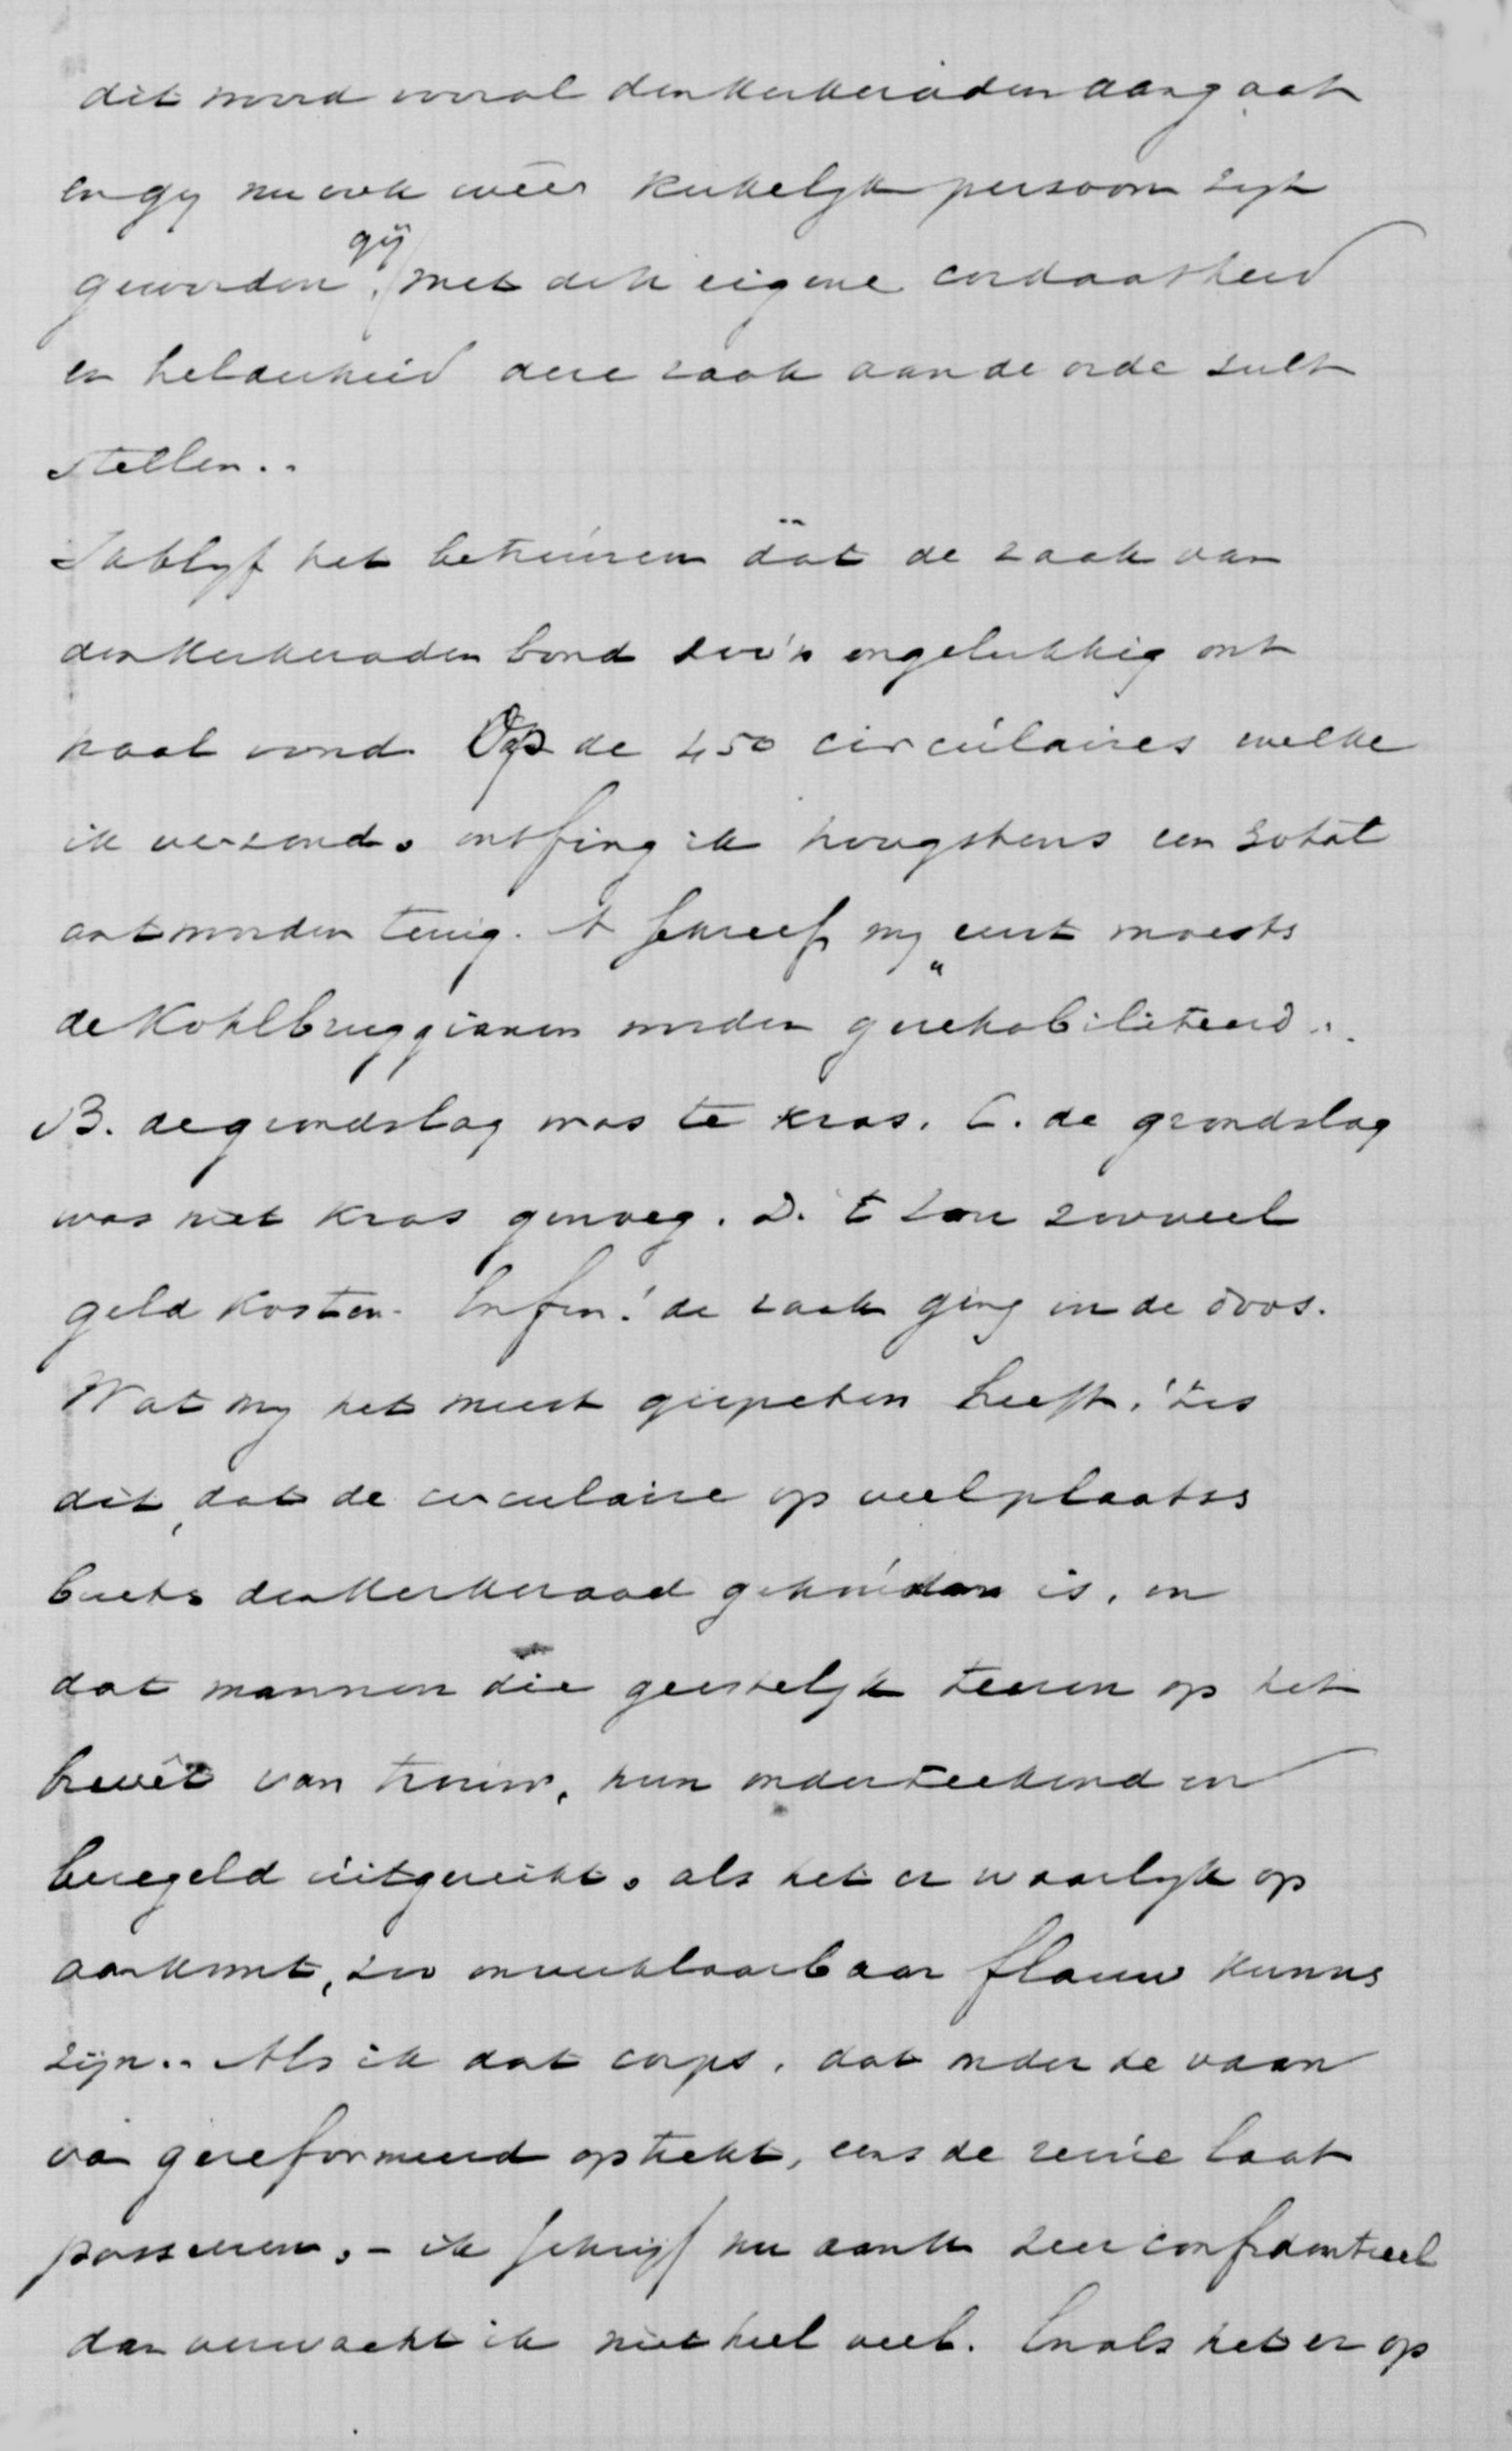 dit woord vooral den Kerkeraden aangaat
en gij nu ook weer Kerkelijk persoon zijt
geworden, gij met de U eigene cordaatheid
en helderheid deze zaak aan de orde zult
stellen..
Ik blijf het betreuren dat de zaak van
den Kerkeraden bond zoo'n ongelukkig ont
haal vond. Op de 450 circulaires welke
ik verzond, ontfing ik hoogstens een 30tal
antwoorden terug. A schreef mij "eerst moests
de Kohlbruggianen worden gerehabiliteerd".
B. de grondslag was te kras. C. de grondslag
was niet kras genoeg. D. 't zou zooveel
geld kosten. Enfin! de zaak ging in de doos.
Wat mij het meest gespeten heeft, 't is
dit, dat de circulaire op veel plaatsen
buiten den Kerkeraad gehouden is, en
dat mannen die geestelijk teeren op het
brevêt van trouw, hun onderteekend en
bezegeld uitgereikt, als het er waarlijk op
aankomt, zoo onverklaarbaar flauw kunnen
zijn.. Als ik dat corps, dat onder de vaan
van gereformeerd optrekt, eens de revue laat
passeeren, - ik schrijf nu aan U zeer confidentieel
dan verwacht ik niet heel veel. En als het er op